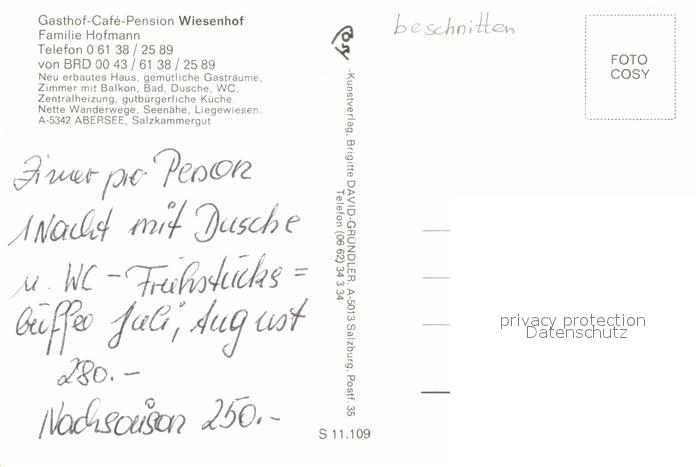 Gasthof-Café-Pension Wiesenhof
Familie Hofmann
Telefon 0 61 38 / 25 89
von BRD 00 43 / 61 38 / 25 89
Neu erbautes Haus, gemütliche Gasträume,
Zimmer mit Balkon, Bad, Dusche, WC,
Zentralheizung, gutbürgerliche Küche.
Nette Wanderwege, Seenähe, Liegewiesen.
A-5342 ABERSEE, Salzkammergut
Zimer pro Person
1 Nacht mit Dusche
u. WC - Frühstücks =
büffee Juli, August
280.-
Nachsaison 250.-
Cosy
-Kunstverlag, Brigitte DAVID-GRÜNDLER, A-5013 Salzburg, Postf. 35
Telefon (06 62) 34 3 34
S 11.109
beschnitten
FOTO
COSY
privacy protection
Datenschutz